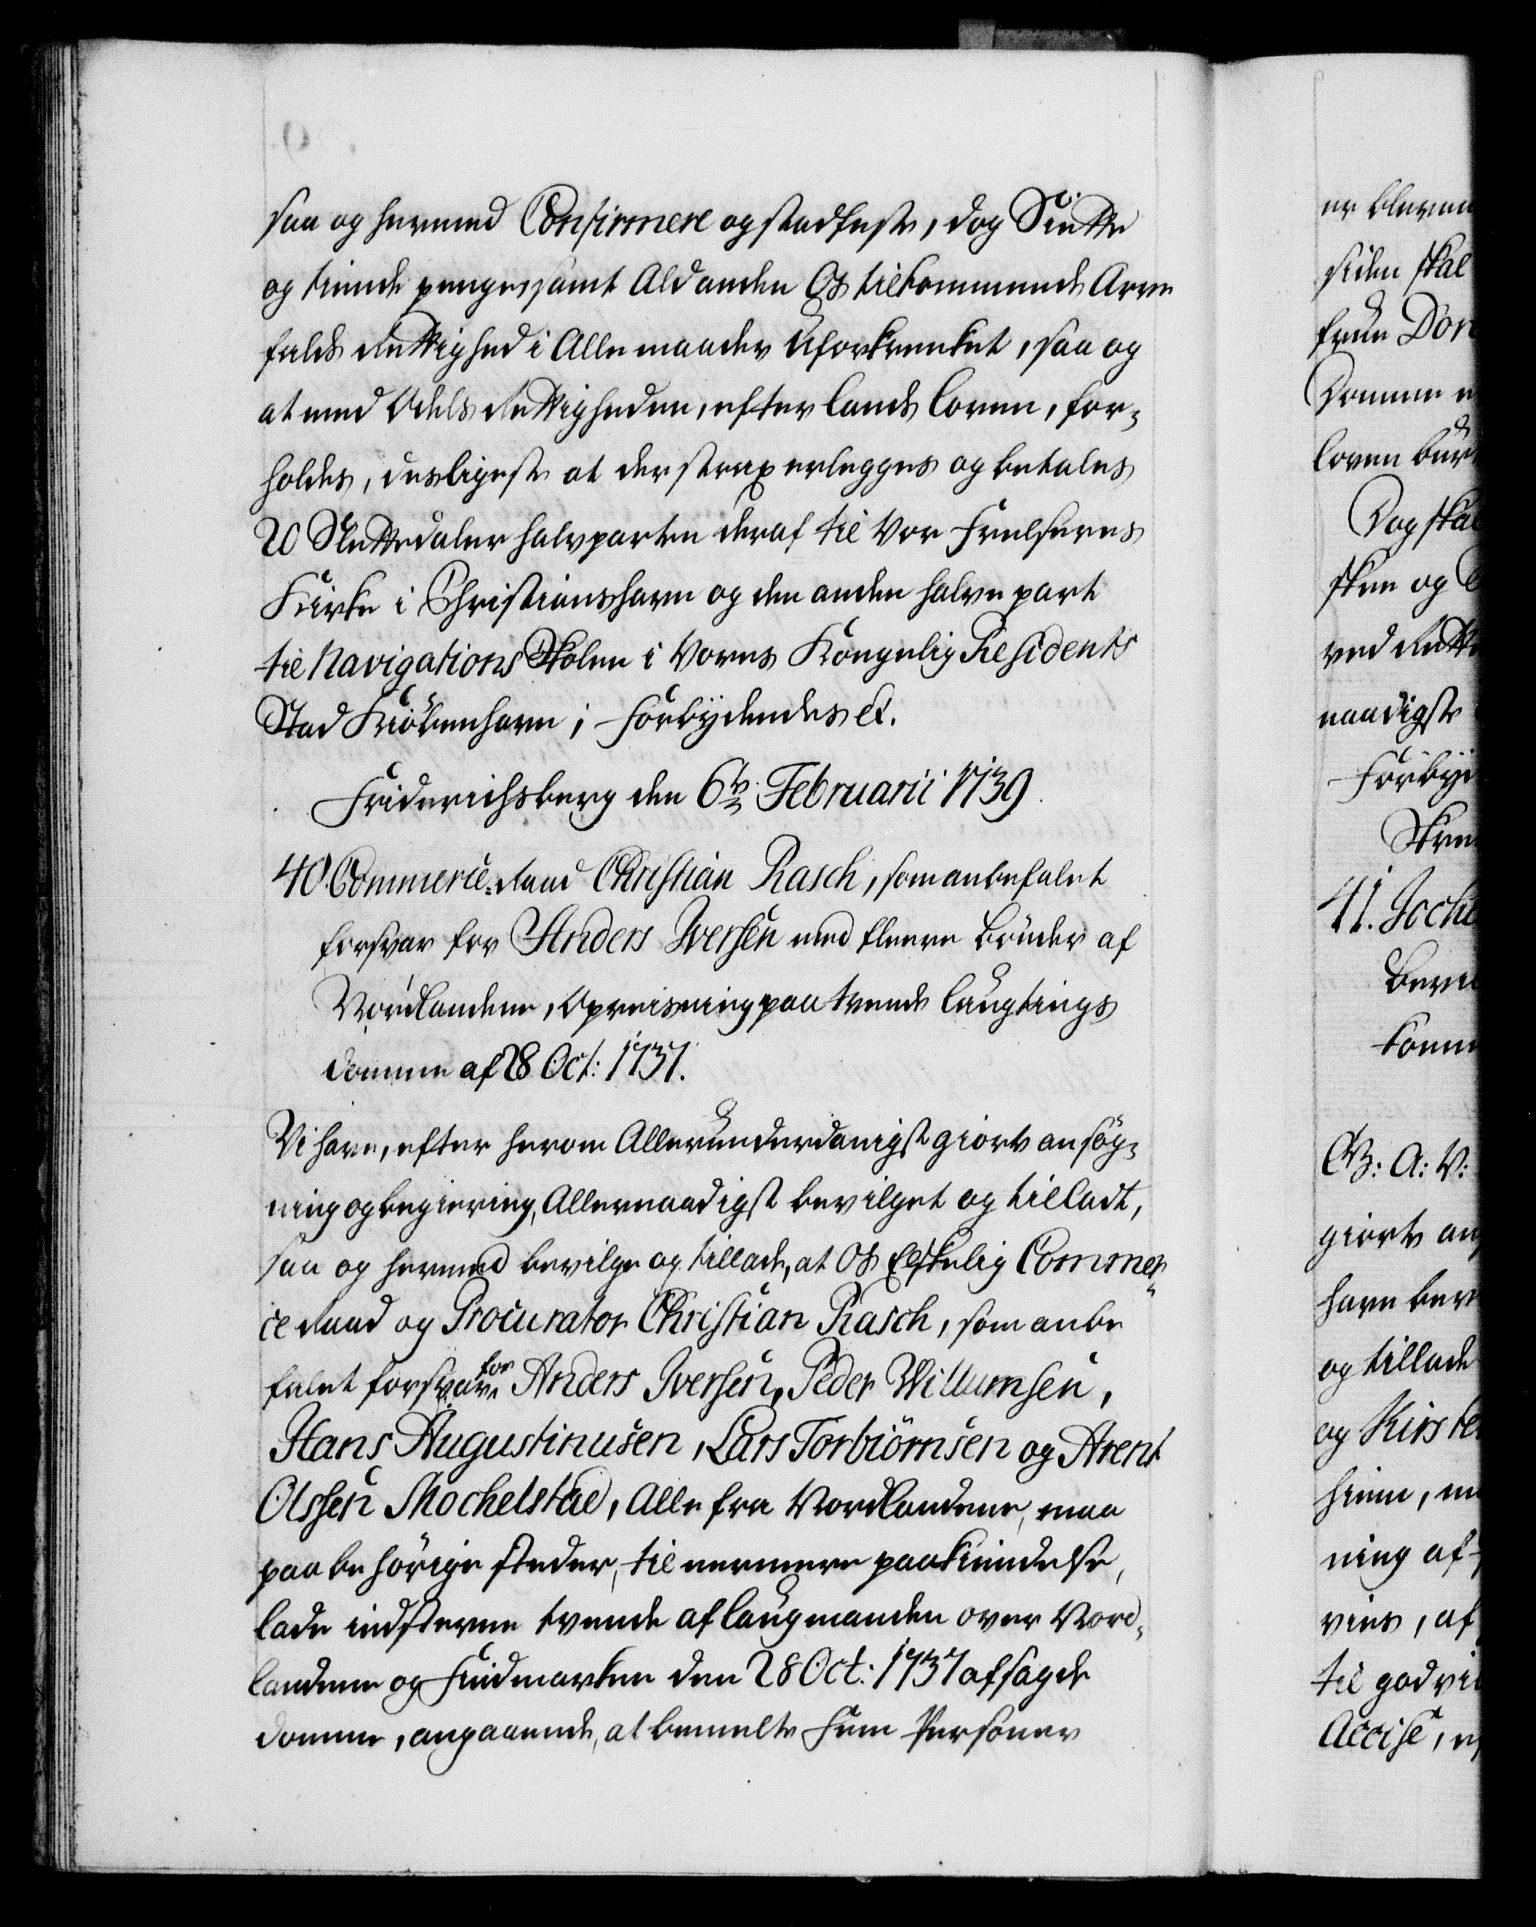 saa og hermed Confirmere og stadfeste, dog Siette
og tiende penge, samt Ald anden Os tilkommende Arve
falds Rettighed i Alle maader Uforkrenket, saa og
at med Odels Rettigheden, efter lands loven, for-
holdes, desligeste at der strax erlegges og betales
20 Slettedaler halvparten deraf til Vor Frelseres
Kirke i Christianshavn og den anden halve part
til Navigations Skolen i Vores Kongelig Residents
Stad Kiöbenhavn; Forbydendes et.
Friderichsberg den 6te Februarii 1739
40. Commercie-Raad Christian Rasch, som anbefalet
forsvar for Anders Iversen med fleere Bönder af
Nordlandene, Opreisning paa tvende Laugtings
domme af 28 Oct: 1737.
Vi have, efter herom Allerunderdanigst giorte ansög-
ning og begiering, Allernaadigst bevilget og tilladt,
saa og hermed bevilge og tillade, at Os Elskelig Commer-
ce Raad og Procurator Christian Rasch, som anbe
falet forsvar for Anders Iversen, Peder Willumsen,
Hans Augustinusen, Lars Torbiörnsen og Arent
Olssen Skochelstad, Alle fra Nordlandene, maa
paa behörige steder, til nermere paakiendelse,
lade indstevne tvende af laugmanden over Nord-
landene og Findmarken den 28 Oct: 1737 afsagde
domme, angaaende, at bemelte Fem Persöner
er bleven
siden skal
frue Dor
Domme
loven bur
Dog skal
skee og
ved Rette
naadigste
Forbyd
Skre
41. Joche
Bevi
komm
G: A: V:
giorte an
have bev
og tillade
og Kirste
hinne,
ning af
viis, af
til godvil
Accise,